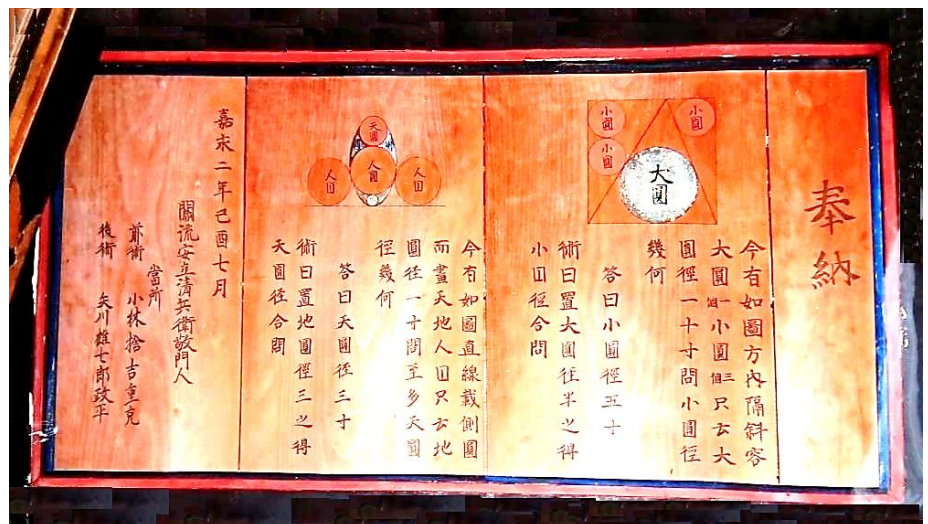 奉納
小圓
小圓
小圓
大圓
今有如圖方内隔斜容
大圓一個小圓三個只云大
圓徑一十寸問小圓徑
幾何
答曰小圓徑五寸
術曰置大圓徑半之得
小囗徑合問
天圓
人囗
人圓
人囗
今有如圖直線載側圓
而畫天地人囗只云地
圓径一寸問至多天圓
徑幾何
答曰天圓径三寸
術曰置地圓徑三之得
天圓径合問
嘉永二年己酉七月
關流安立清兵衛敬門人
當所
前術 小林捨吉重克
後術 矢川雄七郎政平